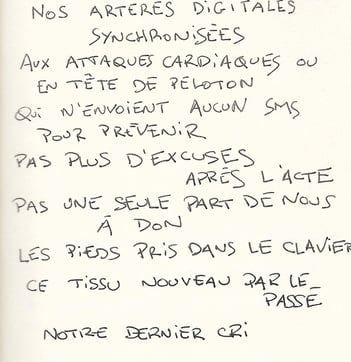 NOS ARTÈRES DIGITALES
SYNCHRONISÉES
AUX ATTAQUES CARDIAQUES OU
EN TÊTE DE PELOTON
QUI N'ENVOIENT AUCUN SMS
POUR PRÉVENIR
PAS PLUS D'EXCUSES
APRÈS L'ACTE
PAS UNE SEULE PART DE NOUS
À DON
LES PIEDS PRIS DANS LE CLAVIER
CE TISSU NOUVEAU PAR LE_
PASSE
NOTRE DERNIER CRI